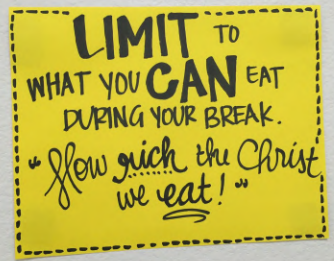 LIMIT TO
WHAT YOU CAN EAT
DURING YOUR BREAK.
"How rich the Christ
we eat!"